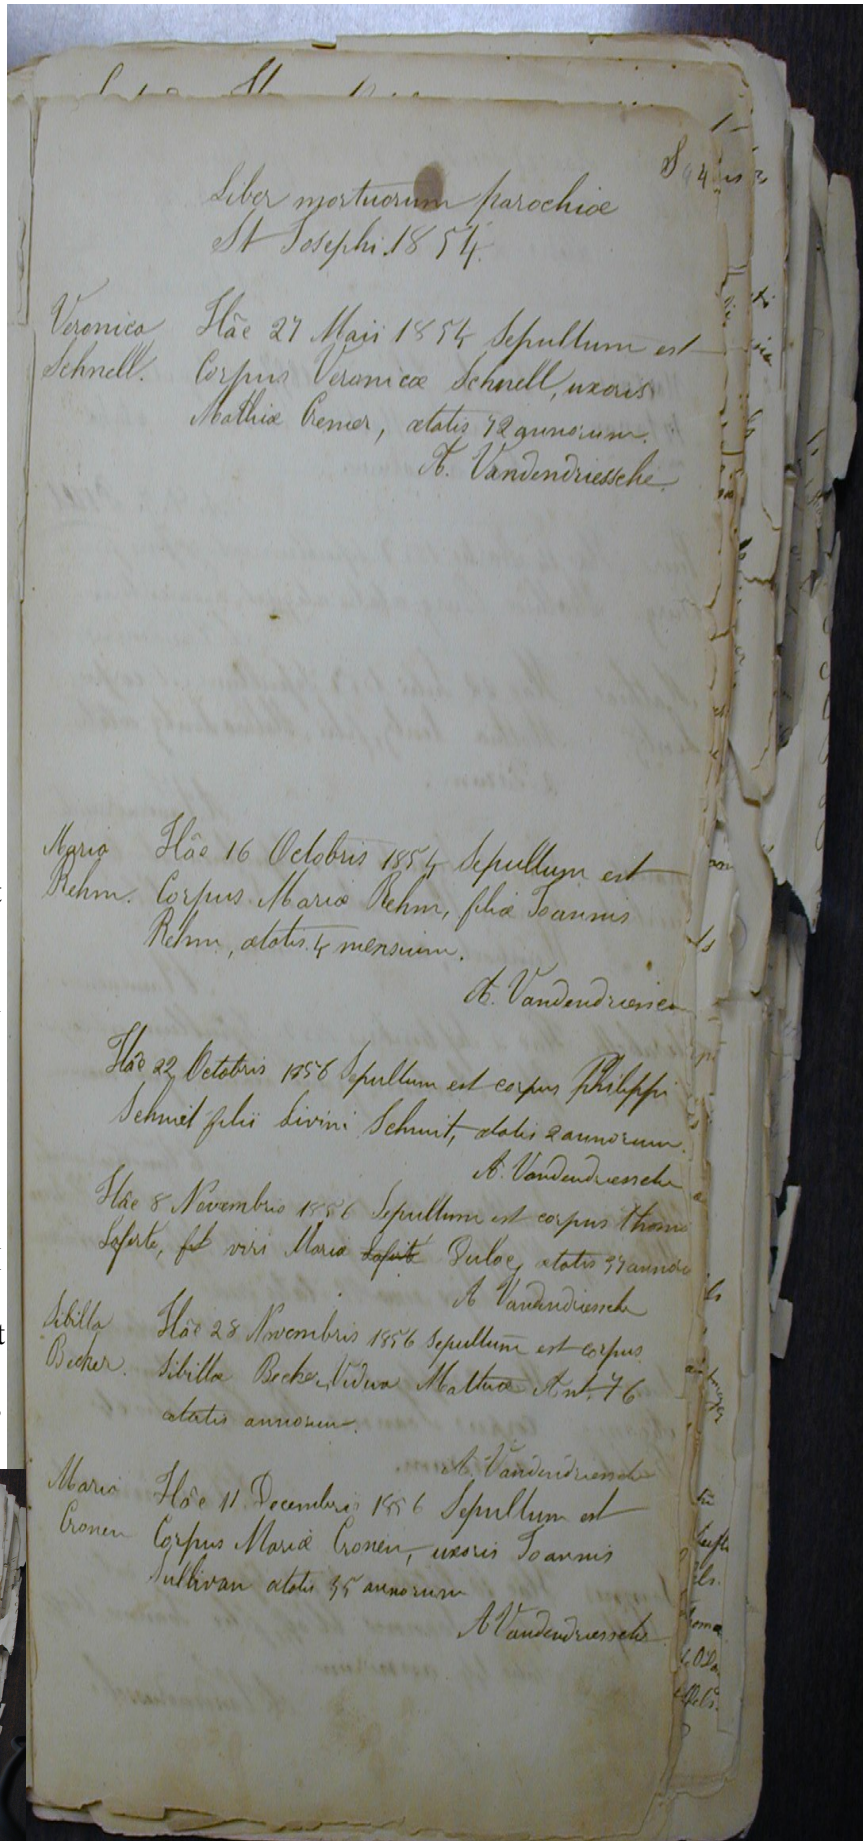 Liber mortuorum parochiæ
St Josephi. 1854.
Veronica
Schnell.
Hâc 27 Maii 1854 Sepultum est
Corpus Veronicæ Schnell, uxoris
Mathiæ Cremer, ætatis 72 annorum.
A. Vandendriessche
Maria
Rehm.
Hâc 16 Octobris 1854 Sepultum est
Corpus Mariæ Rehm, filiæ Joannis
Rehm, ætatis 4 mensium.
A. Vandendriessc
Hâc 22 Octobris 1856 Sepultum est corpus Philippi
Schmit filii Livini Schmit, ætatis 2 annorum.
A. Vandendriessche
Hâc 8 Novembris 1856 Sepultum est corpus Thoma
Laferte, viri Maria ætatis annoru
A Vandendriessche
Sibilla
Becker.
Hâc 28 Novembris 1856 Sepultum est corpus
Sibillæ Becker, Vidua Mathiæ Ant. 76
ætatis annorum.
A. Vandendriessche
Maria
Cronen
Hâc 11 Decembris 1856 Sepultum est
Corpus Mariæ Cronen, uxoris Joannis
Sullivan ætatis 35 annorum
A Vandendriessche